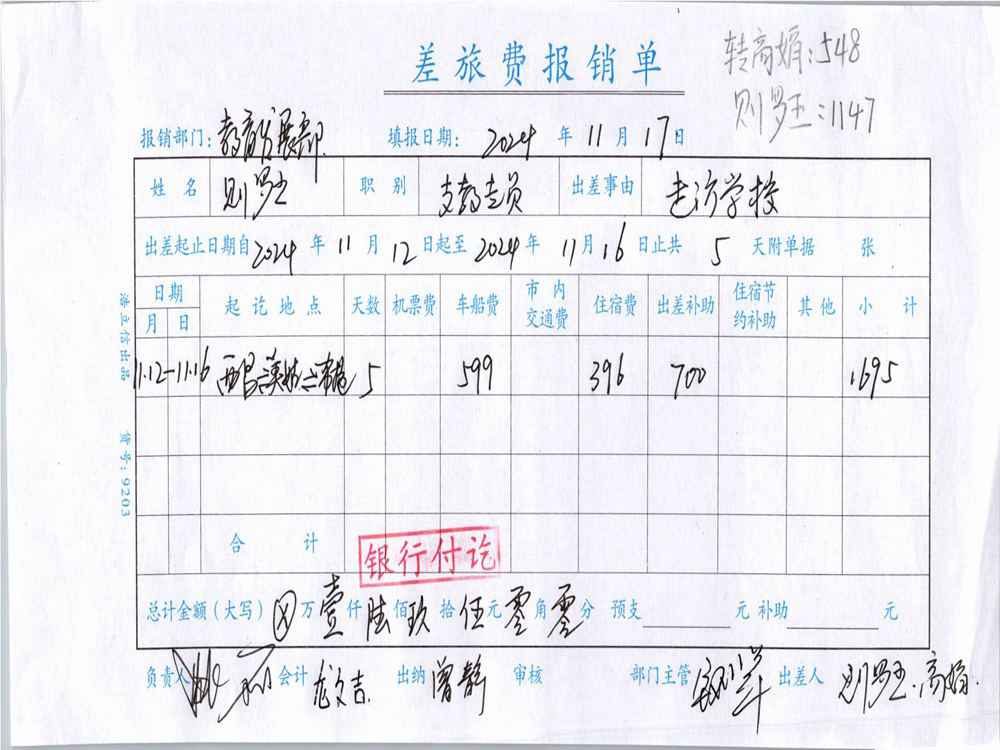 差旅费报销单
转高娟:548
则罗玉:1147
报销部门:教育发展部 填报日期: 2024 年 11 月 17 日
姓名 则罗玉 职别 支教专员 出差事由 走访学校
出差起止日期自 2024 年 11 月 12 日起至 2024 年 11 月 16 日止共 5 天附单据 张
日期 起讫地点 天数 机票费 车船费 市内交通费 住宿费 出差补助 住宿节约补助 其他 小计
月 日
11.12-11.16 西昌 美姑 5 599 396 700 1695
合计
银行付讫
总计金额(大写) ⊗ 万 壹 仟 陆 佰 玖 拾 伍 元 零 角 零 分 预支 元 补助 元
负责人 会计 龙文吉 出纳 曾静 审核 部门主管 出差人 则罗玉、高娟.
浩立信出品 货号:9203